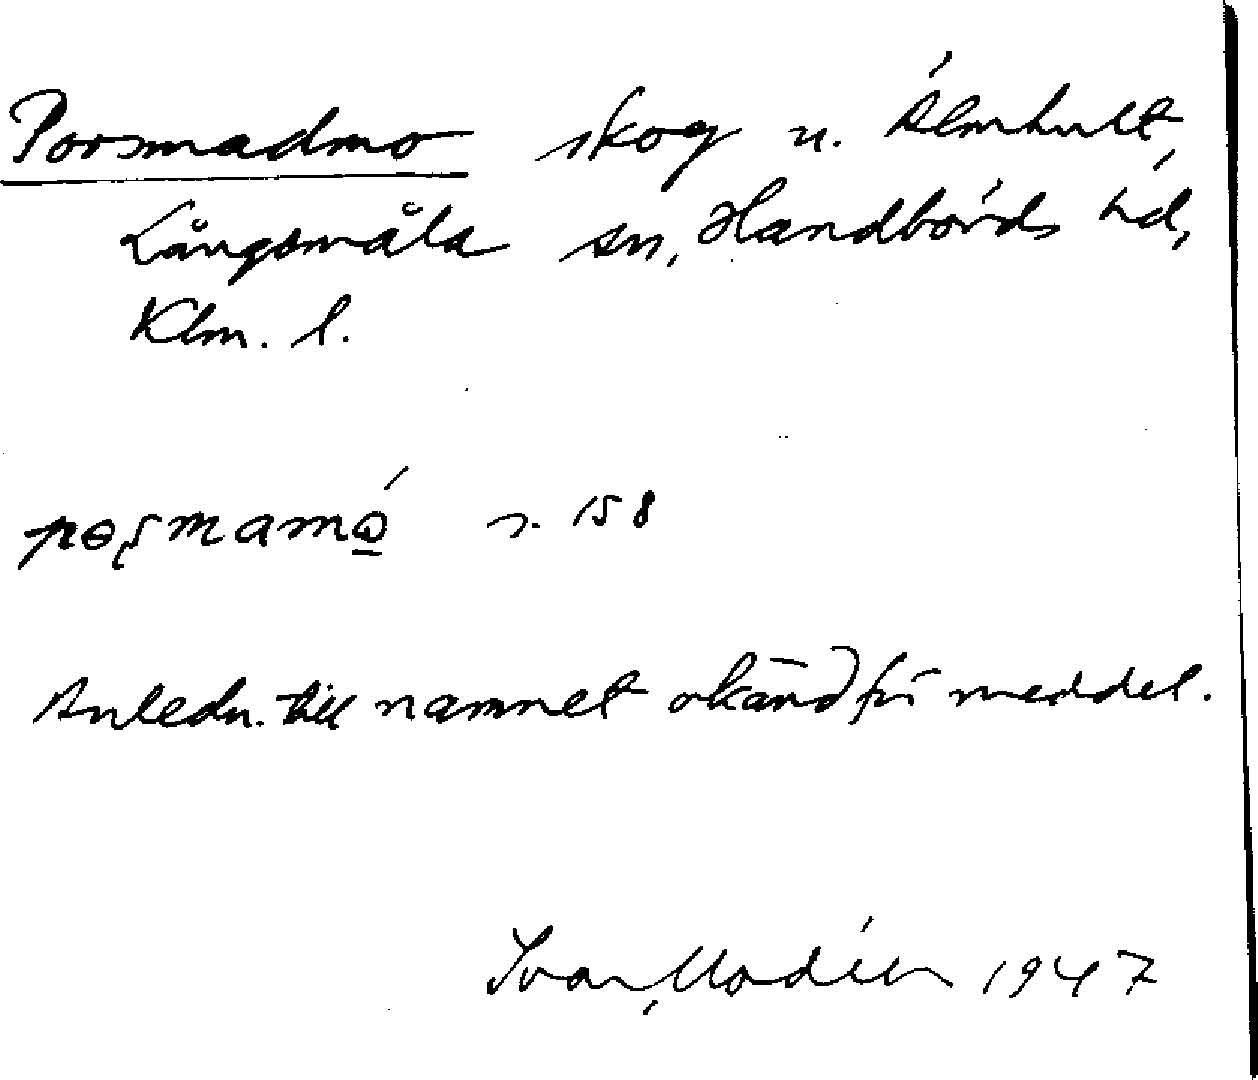 Porsmadmo skog u. Älmhult,
Långemåla sn, Handbörds hd,
Klm. l.
pɵʂmamo̲ ́ s. 158
Anledn. till namnet okänd för meddel.
Ivar Modéer 1947